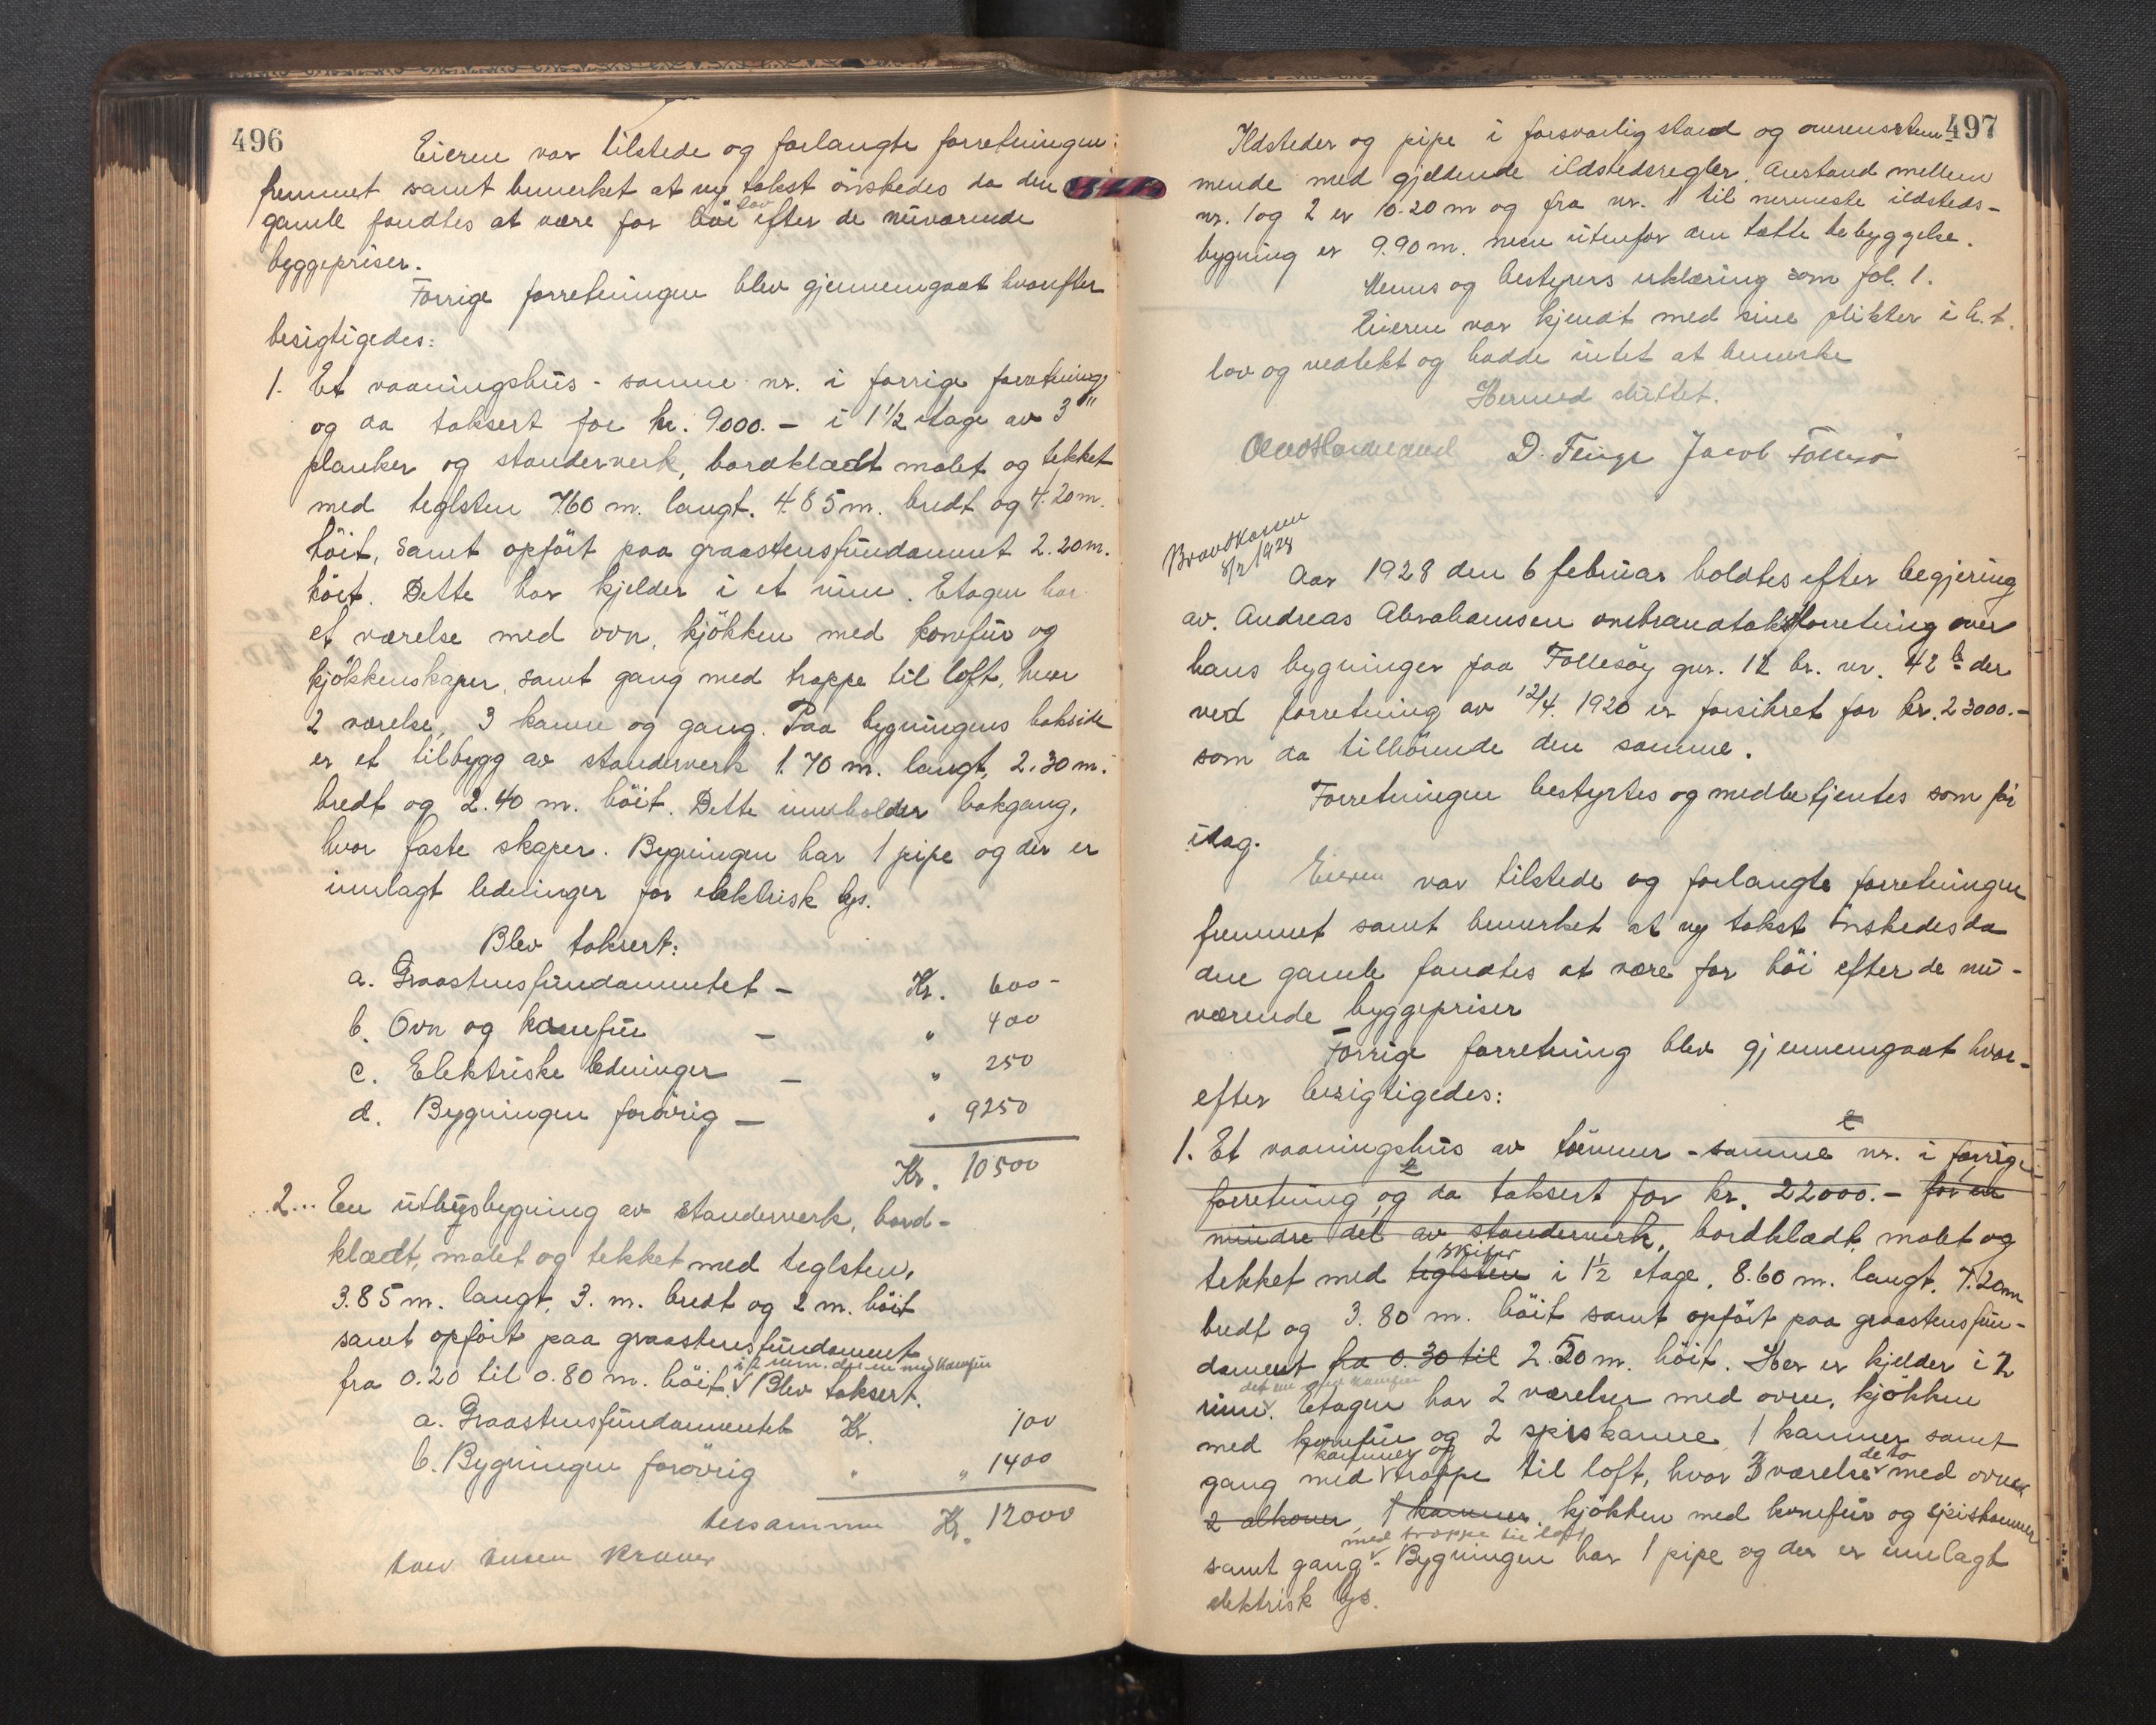 496
Eieren var tilstede og forlangte forretningen
fremmet samt bemerket at ny takst önskedes da den
gamle fandtes at være for höi lav efter de nuværende
byggepriser.
Forrige forretningen blev gjennemgaat hvorefter
besigtigedes:
1. Et vaaningshus - samme nr. i forrige forretning
og da taksert for kr. 9000.- i 1 1/2 etage av 3"
planker og standerverk, bordklædt malet og tekket
med teglsten 7.60 m. langt. 4.85 m. bredt og 4.20 m.
höit, samt opfört paa graastensfundament 2.20 m.
höit. Dette har kjelder i et rum. Etagen har
et værelse med ovn, kjökken med komfur og
kjökkenskaper, samt gang med trappe til loft, hvor
2 værelse, 3 kamre og gang. Paa bygningens bakside
er et tilbygg av standerverk 1.70 m. langt, 2.30 m.
bredt og 2.40 m. höit. Dette inneholder bakgang,
hvor faste skaper. Bygningen har 1 pipe og der er
innlagt ledninger for elektrisk lys.
Blev taksert:
a. Graastensfundamentet - Kr. 600-
b. Ovn og komfur - " 400
c. Elektriske ledninger - " 250
d. Bygningen forövrig - " 9250
Kr. 10500
2... En uthusbygning av standerverk, bord-
klædt, malet og tekket med teglsten,
3.85 m. langt, 3. m. bredt og 2 m. höit
samt opfört paa graastensfundament
i 2 rum. den en med komfur
fra 0.20 til 0.80 m. höit. Blev taksert.
a. Graastensfundamentet Kr. 100
b. Bygningen forövrig " " 1400
tilsammen Kr. 12000
tolv tusen kroner
497
Ildsteder og pipe i forsvarlig stand og overenstem-
mende med gjeldende ildstedsregler. Avstand mellem
nr. 1 og 2 er 10.20 m og fra nr. 1 til nermeste ildsteds-
bygning er 9.90 m. men utenfor den tætte bebyggelse.
Menns og bestyrers erklæring som fol. 1.
Eieren var kjendt med sine plikter i h.t.
lov og vedtekt og hadde intet at bemerke
Hermed sluttet.
D. Jacob Follesö
Brandkassen
8/2 1928
Aar 1928 den 6 februar holdtes efter begjering
av. Andreas Abrahamsen ombrandtakstforretning over
hans bygninger paa Follesöy gnr. 12 br. nr. 42 b der
ved forretning av 12/4. 1920 er forsikret for kr. 23000.-
som da tilhörende den samme.
Forretningen bestyrtes og medbetjentes som för
idag.
Eieren var tilstede og forlangte forretningen
fremmet samt bemerket at ny takst önskedes da
den gamle fandtes at være for höi efter de nu-
værende byggepriser
Forrige forretning blev gjennemgaat hvor-
efter besigtigedes:
1. Et vaaningshus av tömmer - samme nr. i forrige
forretning, og da taksert for kr. 22000.- for en
mindre del av standerverk, bordklædt, malet og
skifer
tekket med teglsten i 1 1/2 etage. 8.60 m. langt. 7.20 m
bredt og 3.80 m. höit samt opfört paa graastensfun-
dament fra 0.30 til 2.50 m. höit. Her er kjelder i 2
det ene med komfur
rum. Etagen har 2 værelser med ovne, kjökken
med komfur og 2 spiskamre, 1 kammer samt
kammer og de to
gang med trappe til loft, hvor 3 værelse med ovner
2 alkover, 1 kammer, kjökken med komfur og spiskammer
med trappe til loft
samt gang. Bygningen har 1 pipe og der er innlagt
elektrisk lys.